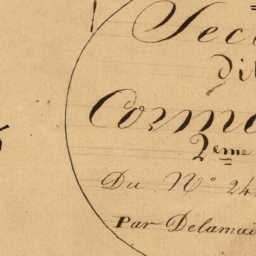 Sec
di
Corm
2eme
Du No 24
Par Delamai